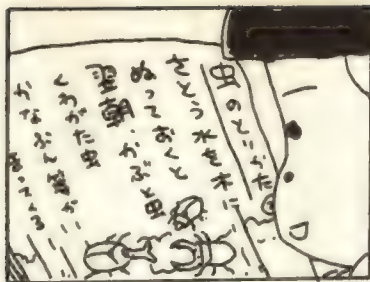 虫のとりかた
さとう水を木に
ぬっておくと
翌朝、かぶと虫
くわがた虫
かなぶん等が
集ってくる